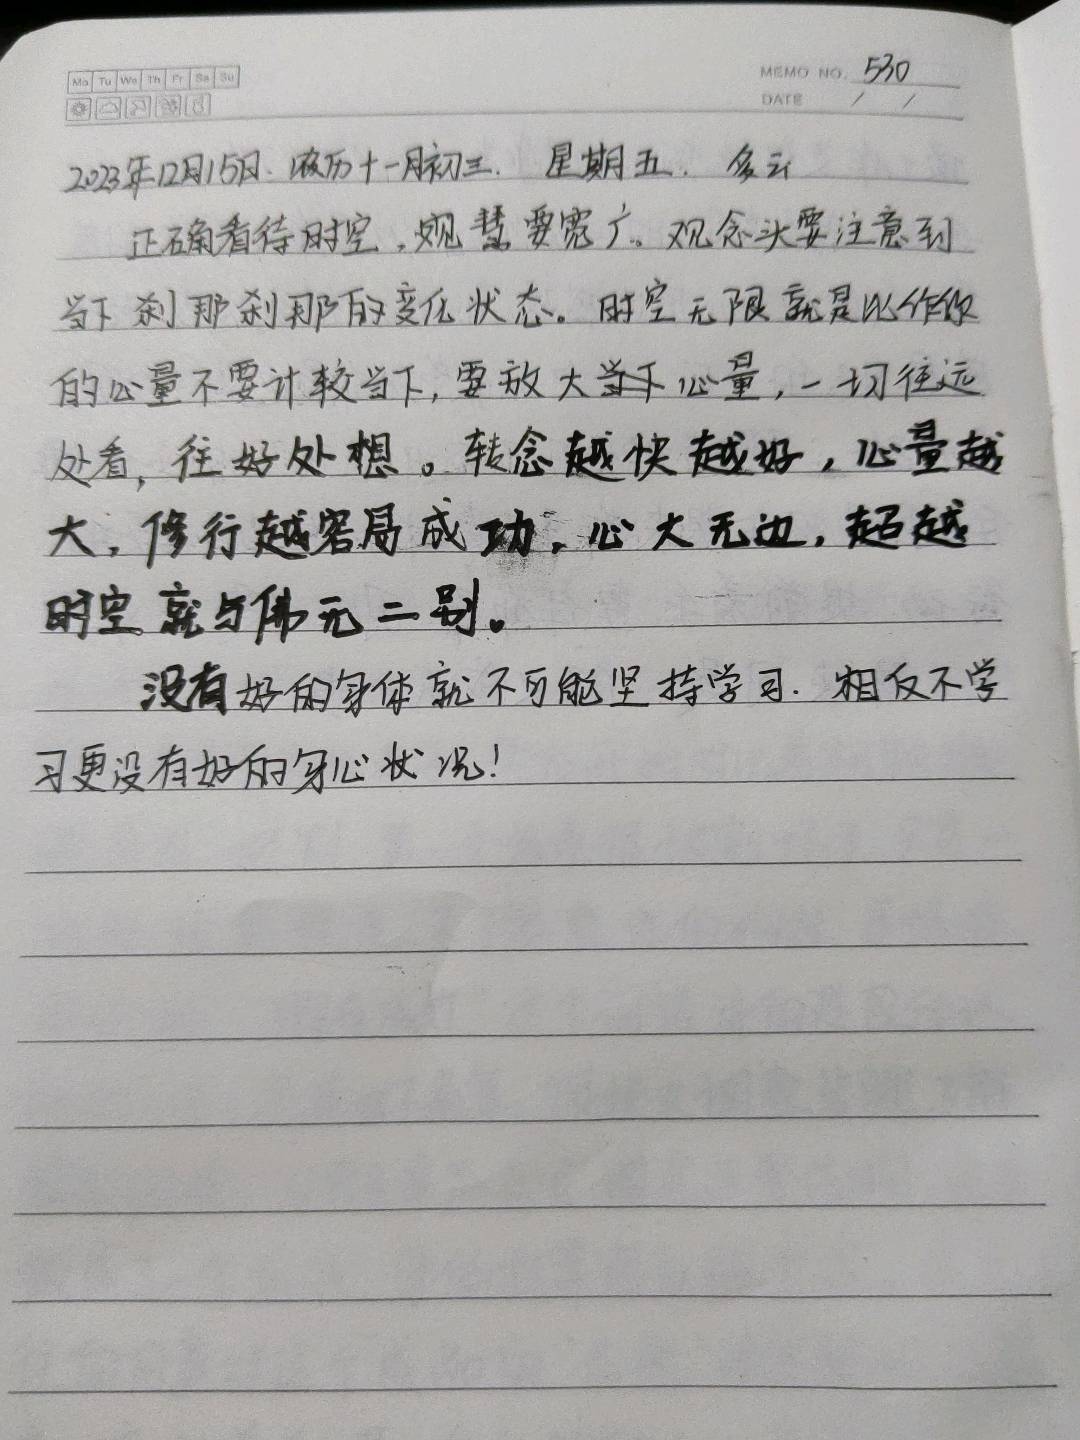 Mo Tu We Th Fr Sa Su
MEMO NO. 530
DATE / /
2023年12月15日. 农历十一月初三. 星期五. 多云
正确看待时空,观慧要宽广。观念头要注意到
当下刹那刹那的变化状态。时空无限就是比作你
的心量不要计较当下,要放大当下心量,一切往远
处看,往好处想。转念越快越好,心量越
大,修行越容易成功,心大无边,超越
时空就与佛无二别。
没有好的身体就不可能坚持学习.相反不学
习更没有好的身心状况!